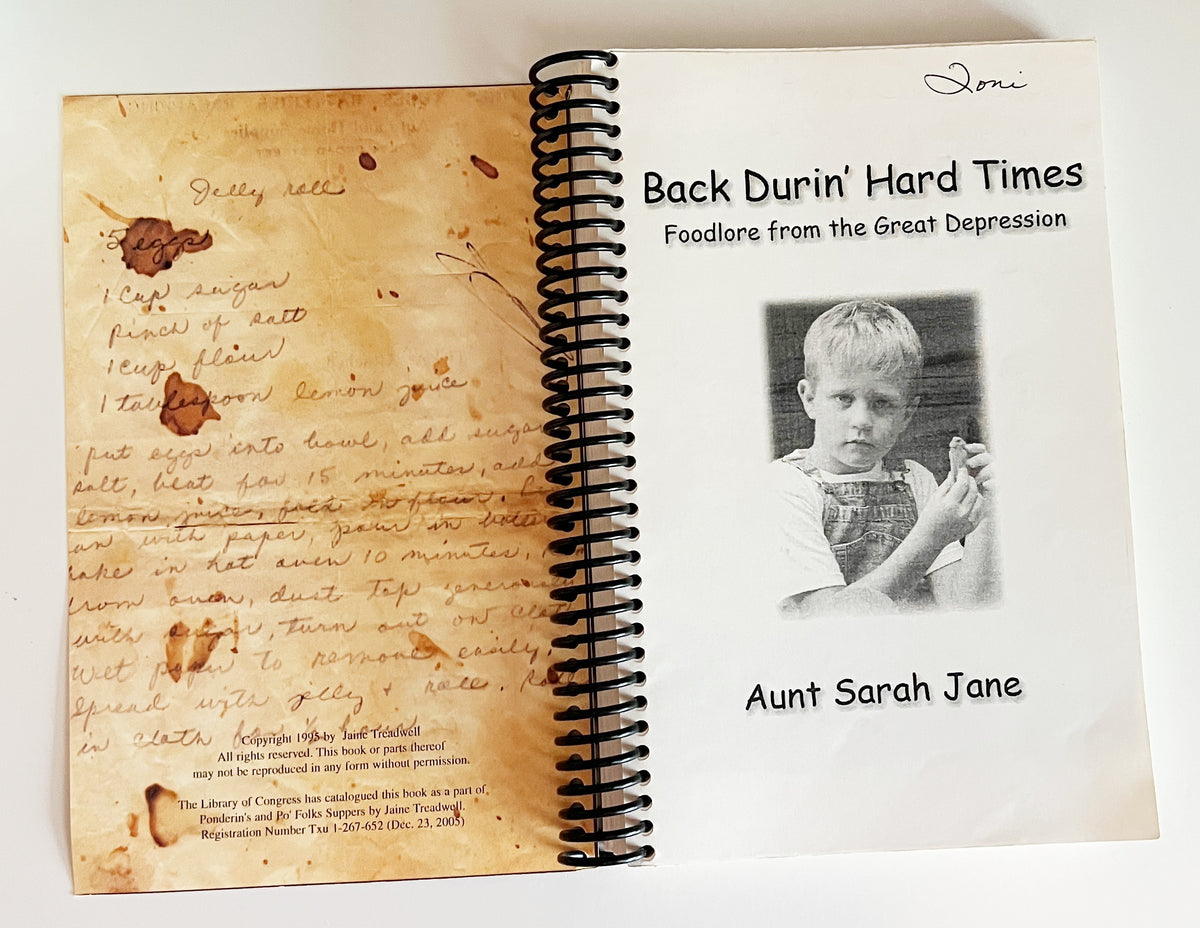 Jelly roll
5 eggs
1 cup sugar
pinch of salt
1 cup flour
1 tablespoon lemon juice
put eggs into bowl, add sugar
salt, beat for 15 minutes, add
lemon juice, fold in flour.
an with paper, pour in batte
bake in hot oven 10 minutes,
from oven, dust top generously
with sugar, turn out on cloth
Wet paper to remove easily.
Spread with jelly + roll. Roll
in cloth for ½ hour
Copyright 1995 by Jaine Treadwell
All rights reserved. This book or parts thereof
may not be reproduced in any form without permission.
The Library of Congress has catalogued this book as a part of
Ponderin's and Po' Folks Suppers by Jaine Treadwell.
Registration Number Txu 1-267-652 (Dec. 23, 2005)
Toni
Back Durin' Hard Times
Foodlore from the Great Depression
Aunt Sarah Jane